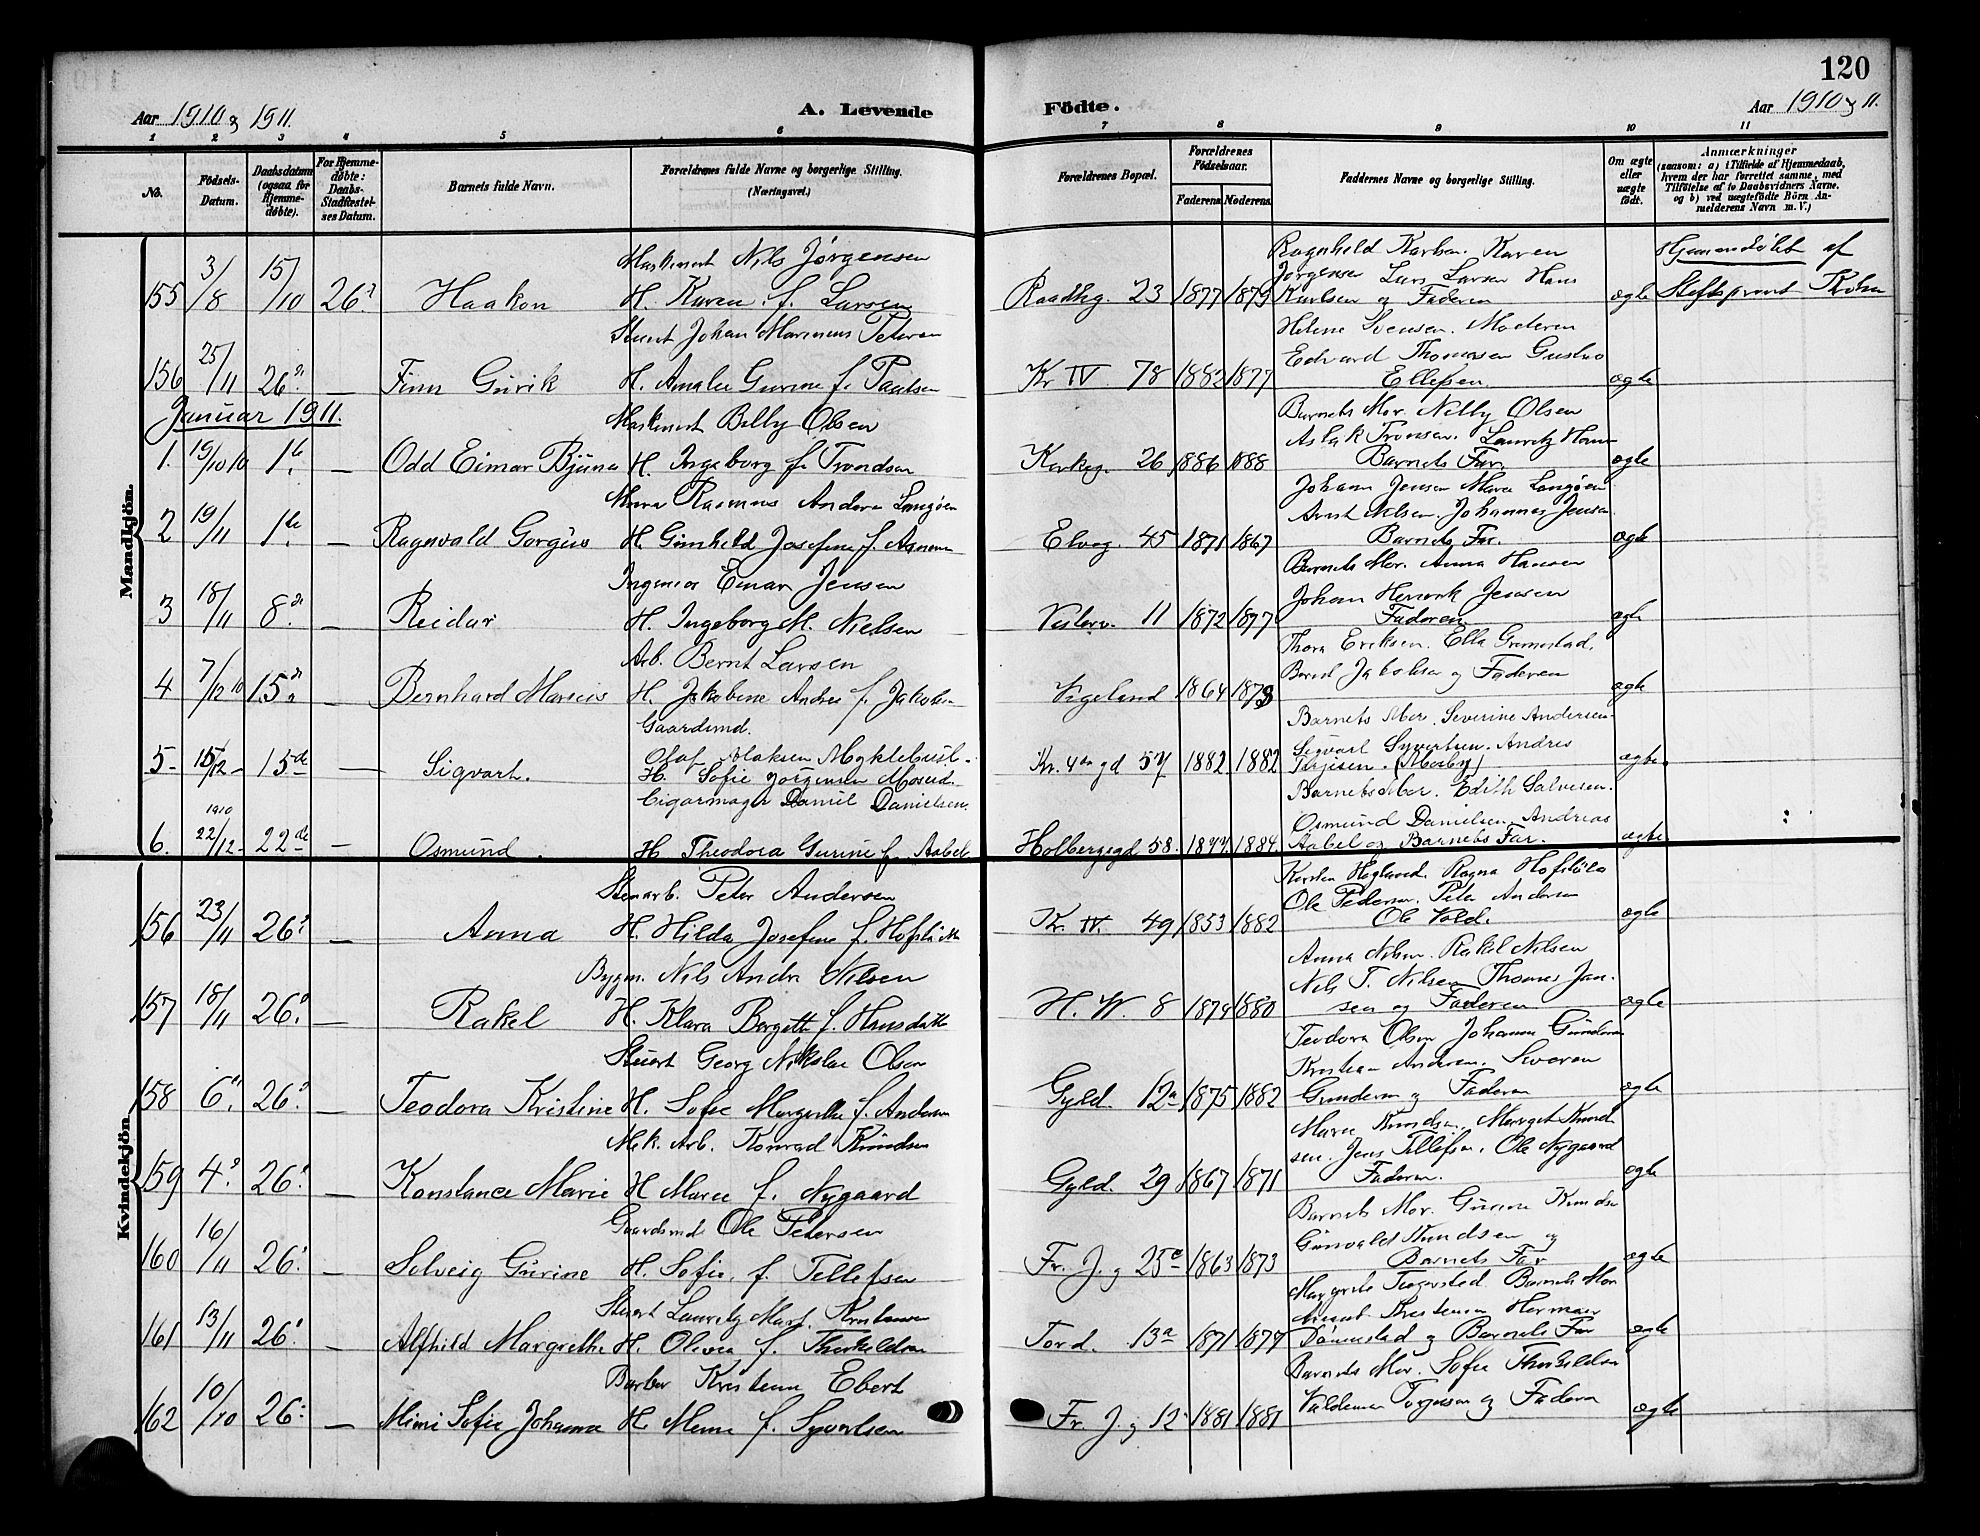 120
Aar 1910 & 1911.
A. Levende Födte.
Aar 1910 & 11.
1 2 3 4 5 6 7 8 9 10 11
No.
Födsels-Datum.
Daabsdatum (ogsaa for Hjemme-döbte).
For Hjemme-döbte: Daabs-Stadfæstel-ses Datum.
Barnets fulde Navn.
Forældrenes fulde Navne og borgerlige Stilling. (Næringsvei.)
Forældrenes Bopæl.
Forældrenes Födselsaar.
Faderens. Moderens.
Faddernes Navne og borgerlige Stilling.
Om ægte eller uægte födt.
Anmærkninger
(saasom: a) i Tilfælde af Hjemmedaab, hvem der har forrettet samme, med Tilföielse af to Daabsvidners Navne. og b) ved uægtefödte Börn An-melderens Navn m. V.)
Mandkjön.
155 3/8 15/10 26 Haakon
Maskinist Nils Jørgensen
H. Karen f. Larsen
Raadhg. 23 1877 1879
Ragnhild Karlsen. Karen
Jørgensen Lars Larsen Hans
Karlsen og Faderen
ægte
Hjemmedøbt af
Stiftsprovst
156 25/11 26 — Finn Gurik
Stuert Johan Marinius Petersen
H. Amalie Gurine f. Paulsen
Kr IV 78 1882 1877
Helene Svensen. Moderen
Edvard Thomasen Gustav
Ellefsen.
ægte
Januar 1911.
1. 19/10 10 1 — Odd Eimar Bjune
Maskinist Billy Olsen
H. Ingeborg f. Trondsen
Kirkeg. 26 1886 1888
Barnets Mor. Nilly Olsen
Aslak Tronsen. Lauritz
Barnets Far.
ægte
2 19/11 1 — Ragnvald Gorgus
Rasmus Andersen Langøen
H. Gunhild Josefine f. Asmunn
Elveg. 45 1871 1867
Johan Jensen Marie Langøen
Arnt Nilsen. Johannes Jensen
Barnets Far.
ægte
3 18/11 8 — Reidar
Ingeniør Einar Jensen
H. Ingeborg M. Nielsen
Vesterv. 11 1872 1877
Barnets Mor. Anna Hansen
Johan Henrik Jensen
Faderen
ægte
4 7/12 10 15 — Bernhard Marius
Arb. Bernt Larsen
H. Jakobine Andrea f. Jakobsen
Vigeland 1864 1873
Thora Eriksen. Ella Grimestad.
Bernt Jakobsen og Faderen
ægte
5 15/12 — 15de — Sigvart.
Gaardsmd.
Olaf Aslaksen Myklebust.
H. Sofie Jørgensen Mosvd.
Kr. 4de gd 57 1882 1882
Barnets Mor. Severine Andersen
Sigvart Syvertsen. Andreas
Terjesen. (Mosby)
ægte.
6. 1910 22/12 — 22de — Osmund.
Cigarmager Daniel Danielsen
H. Theodora Gurine f. Aabel
Holbergsgd 58. 1877 1884
Barnets Mor. Edith Salvesen.
Osmund Danielsen. Andreas
Aabel og Barnets Far.
ægte
Kvindekjön
156 23/11 26 — Anna
Stenarb. Peter Andersen
H. Hilda Josefine f. Hofslöten
Kr. IV. 49 1853 1882
Karsten Hegland. Ragna Hofslöten
Ole Pedersen. Peter Andersen
Ole Vold.
ægte
157 18/11 26 — Rakel
Bygm. Nils Andr Nilsen
H. Klara Bergitte f. Hansdatter
H. W. 8 1874 1880
Anna Nilsen. Rakel Nilsen
Nils T. Nilsen Thomas Jan-
sen og Faderen
ægte
158 6 26 — Teodora Kristine
Stuert Georg Nikolai Olsen
H. Sofie Margrethe f. Andersen
Gyld. 12a 1875 1882
Teodora Olsen Johanne Gundersen
Kristian Andersen. Severen
Gundersen og Faderen
ægte
159 4 26 — Konstance Marie
Mek. Arb. Konrad Knudsen
H Marie f. Nygaard
Gyld. 29 1867 1871
Marie Knudsen. Margit Knud-
sen. Jens Tellefsen. Ole Nygaard
Faderen.
ægte
160 16/11 26 — Solveig Gurine
Gaardsmd Ole Petersen
H. Sofie f. Tellefsen
Fr. J. g 25c 1863 1873
Barnets Mor. Gurine Knudsen
Gunvald Knudsen og
Barnets Far
ægte
161 13/11 26 — Alfhild Margrethe
Stuert Lauritz Mart. Kristensen
H. Olivia f. Therkeldsen
Tord. 13a 1871 1874
Margrete Barnets Mor
Kristensen Herman
Dønnestad og Barnets Far
ægte
162 10/10 26 — Mimi Sofie Johanna
Barber Kristian Ebert
H. Mimi f. Syvertsen
Fr. J. g 12 1881 1881
Barnets Mor. Sofie Therkeldsen
Valdemar Torgersen og Faderen
ægte